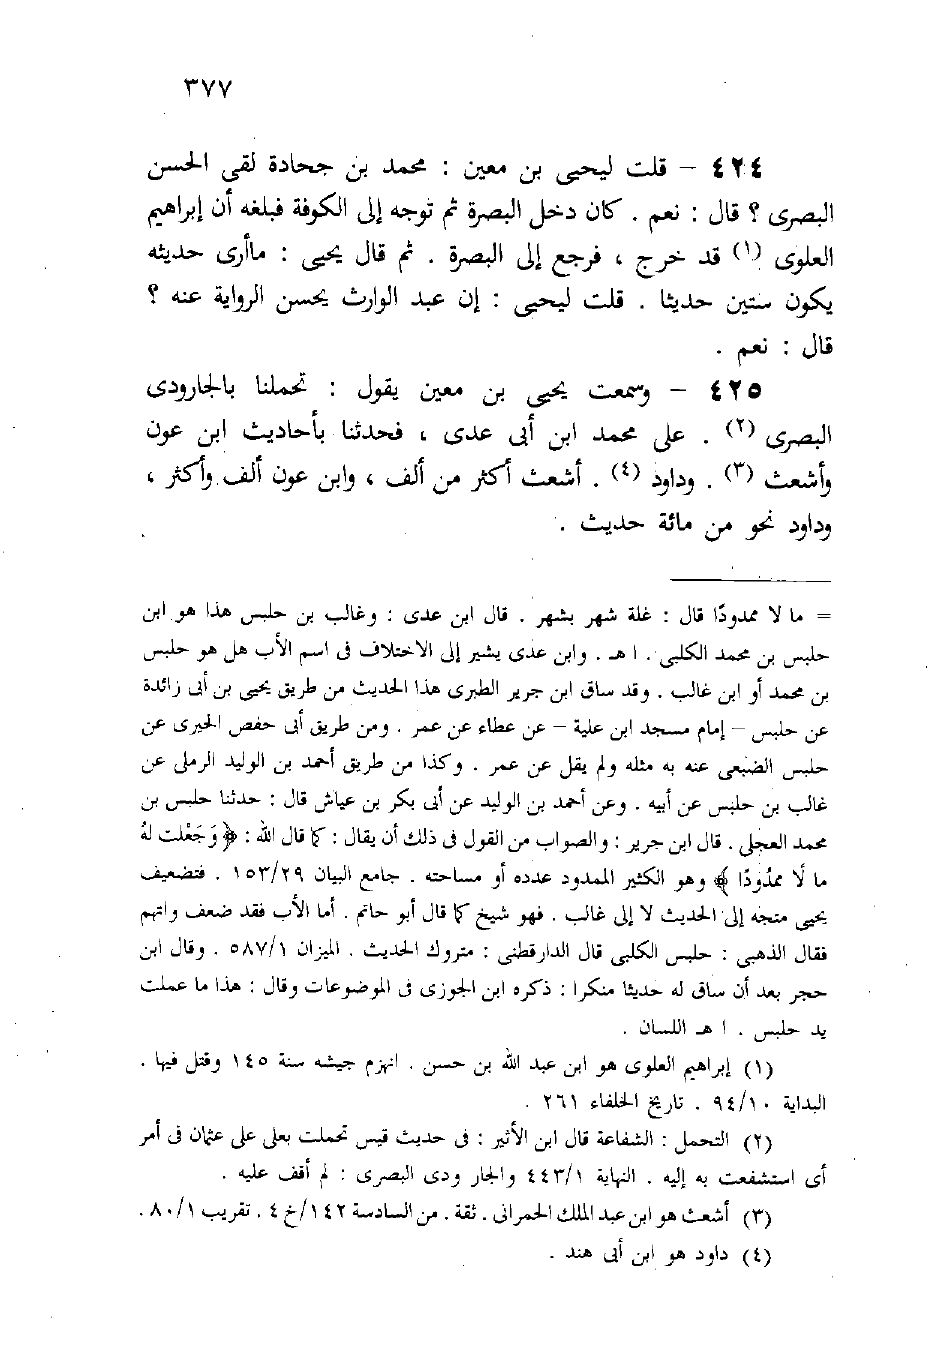 ٣٧٧
٤٢٤ – قلت ليحيى بن معين : محمد بن جحادة لقى الحسن
البصرى ؟ قال : نعم . كان دخل البصرة ثم توجه إلى الكوفة فبلغه أن إبراهيم
العلوى (١) قد خرج ، فرجع إلى البصرة . ثم قال يحيى : ماأرى حديثه
يكون ستين حديثا . قلت ليحيى : إن عبد الوارث يحسن الرواية عنه ؟
قال : نعم .
٤٢٥ – وسمعت يحيى بن معين يقول : تحملنا بالجارودى
البصرى (٢) . على محمد ابن أبى عدى ، فحدثنا بأحاديث ابن عون
وأشعث (٣) . وداود (٤) . أشعث أكثر من ألف ، وابن عون ألف وأكثر ،
وداود نحو من مائة حديث .
= ما لا ممدودًا قال : غلة شهر بشهر . قال ابن عدى : وغالب بن حلبس هذا هو ابن
حلبس بن محمد الكلبى . ا هـ . وابن عدى يشير إلى الاختلاف فى اسم الأب هل هو حلبس
بن محمد أو ابن غالب . وقد ساق ابن جرير الطبرى هذا الحديث من طريق يحيى بن أبى زائدة
عن حلبس – إمام مسجد ابن علية – عن عطاء عن عمر . ومن طريق أبى حفص الحيرى عن
حلبس الضبعى عنه به مثله ولم يقل عن عمر . وكذا من طريق أحمد بن الوليد الرملى عن
غالب بن حلبس عن أبيه . وعن أحمد بن الوليد عن أبى بكر بن عياش قال : حدثنا حلبس بن
محمد العجلى . قال ابن جرير : والصواب من القول فى ذلك أن يقال : كما قال الله : ﴿ وَجَعْلت لهُ
ما لًا ممدُودًا ﴾ وهو الكثير الممدود عدده أو مساحته . جامع البيان ١٥٣/٢٩ . فتضعيف
يحيى متجه إلى الحديث لا إلى غالب . فهو شيخ كما قال أبو حاتم . أما الأب فقد ضعف واتهم
فقال الذهبى : حلبس الكلبى قال الدارقطنى : متروك الحديث . الميزان ٥٨٧/١ . وقال ابن
حجر بعد أن ساق له حديثا منكرا : ذكره ابن الجوزى فى الموضوعات وقال : هذا ما عملت
يد حلبس . ا هـ اللسان .
(١) إبراهيم العلوى هو ابن عبد الله بن حسن . انهزم جيشه سنة ١٤٥ وقتل فيها .
البداية ٩٤/١٠ . تاريخ الخلفاء ٢٦١ .
(٢) التحمل : الشفاعة قال ابن الأثير : فى حديث قيس تحملت بعلى على عثمان فى أمر
أى استشفعت به إليه . النهاية ٤٤٣/١ والجار ودى البصرى : لم أقف عليه .
(٣) أشعث هو ابن عبد الملك الحمرانى . ثقة . من السادسة ١٤٢/خ ٤ . تقريب ٨٠/١ .
(٤) داود هو ابن أبى هند .